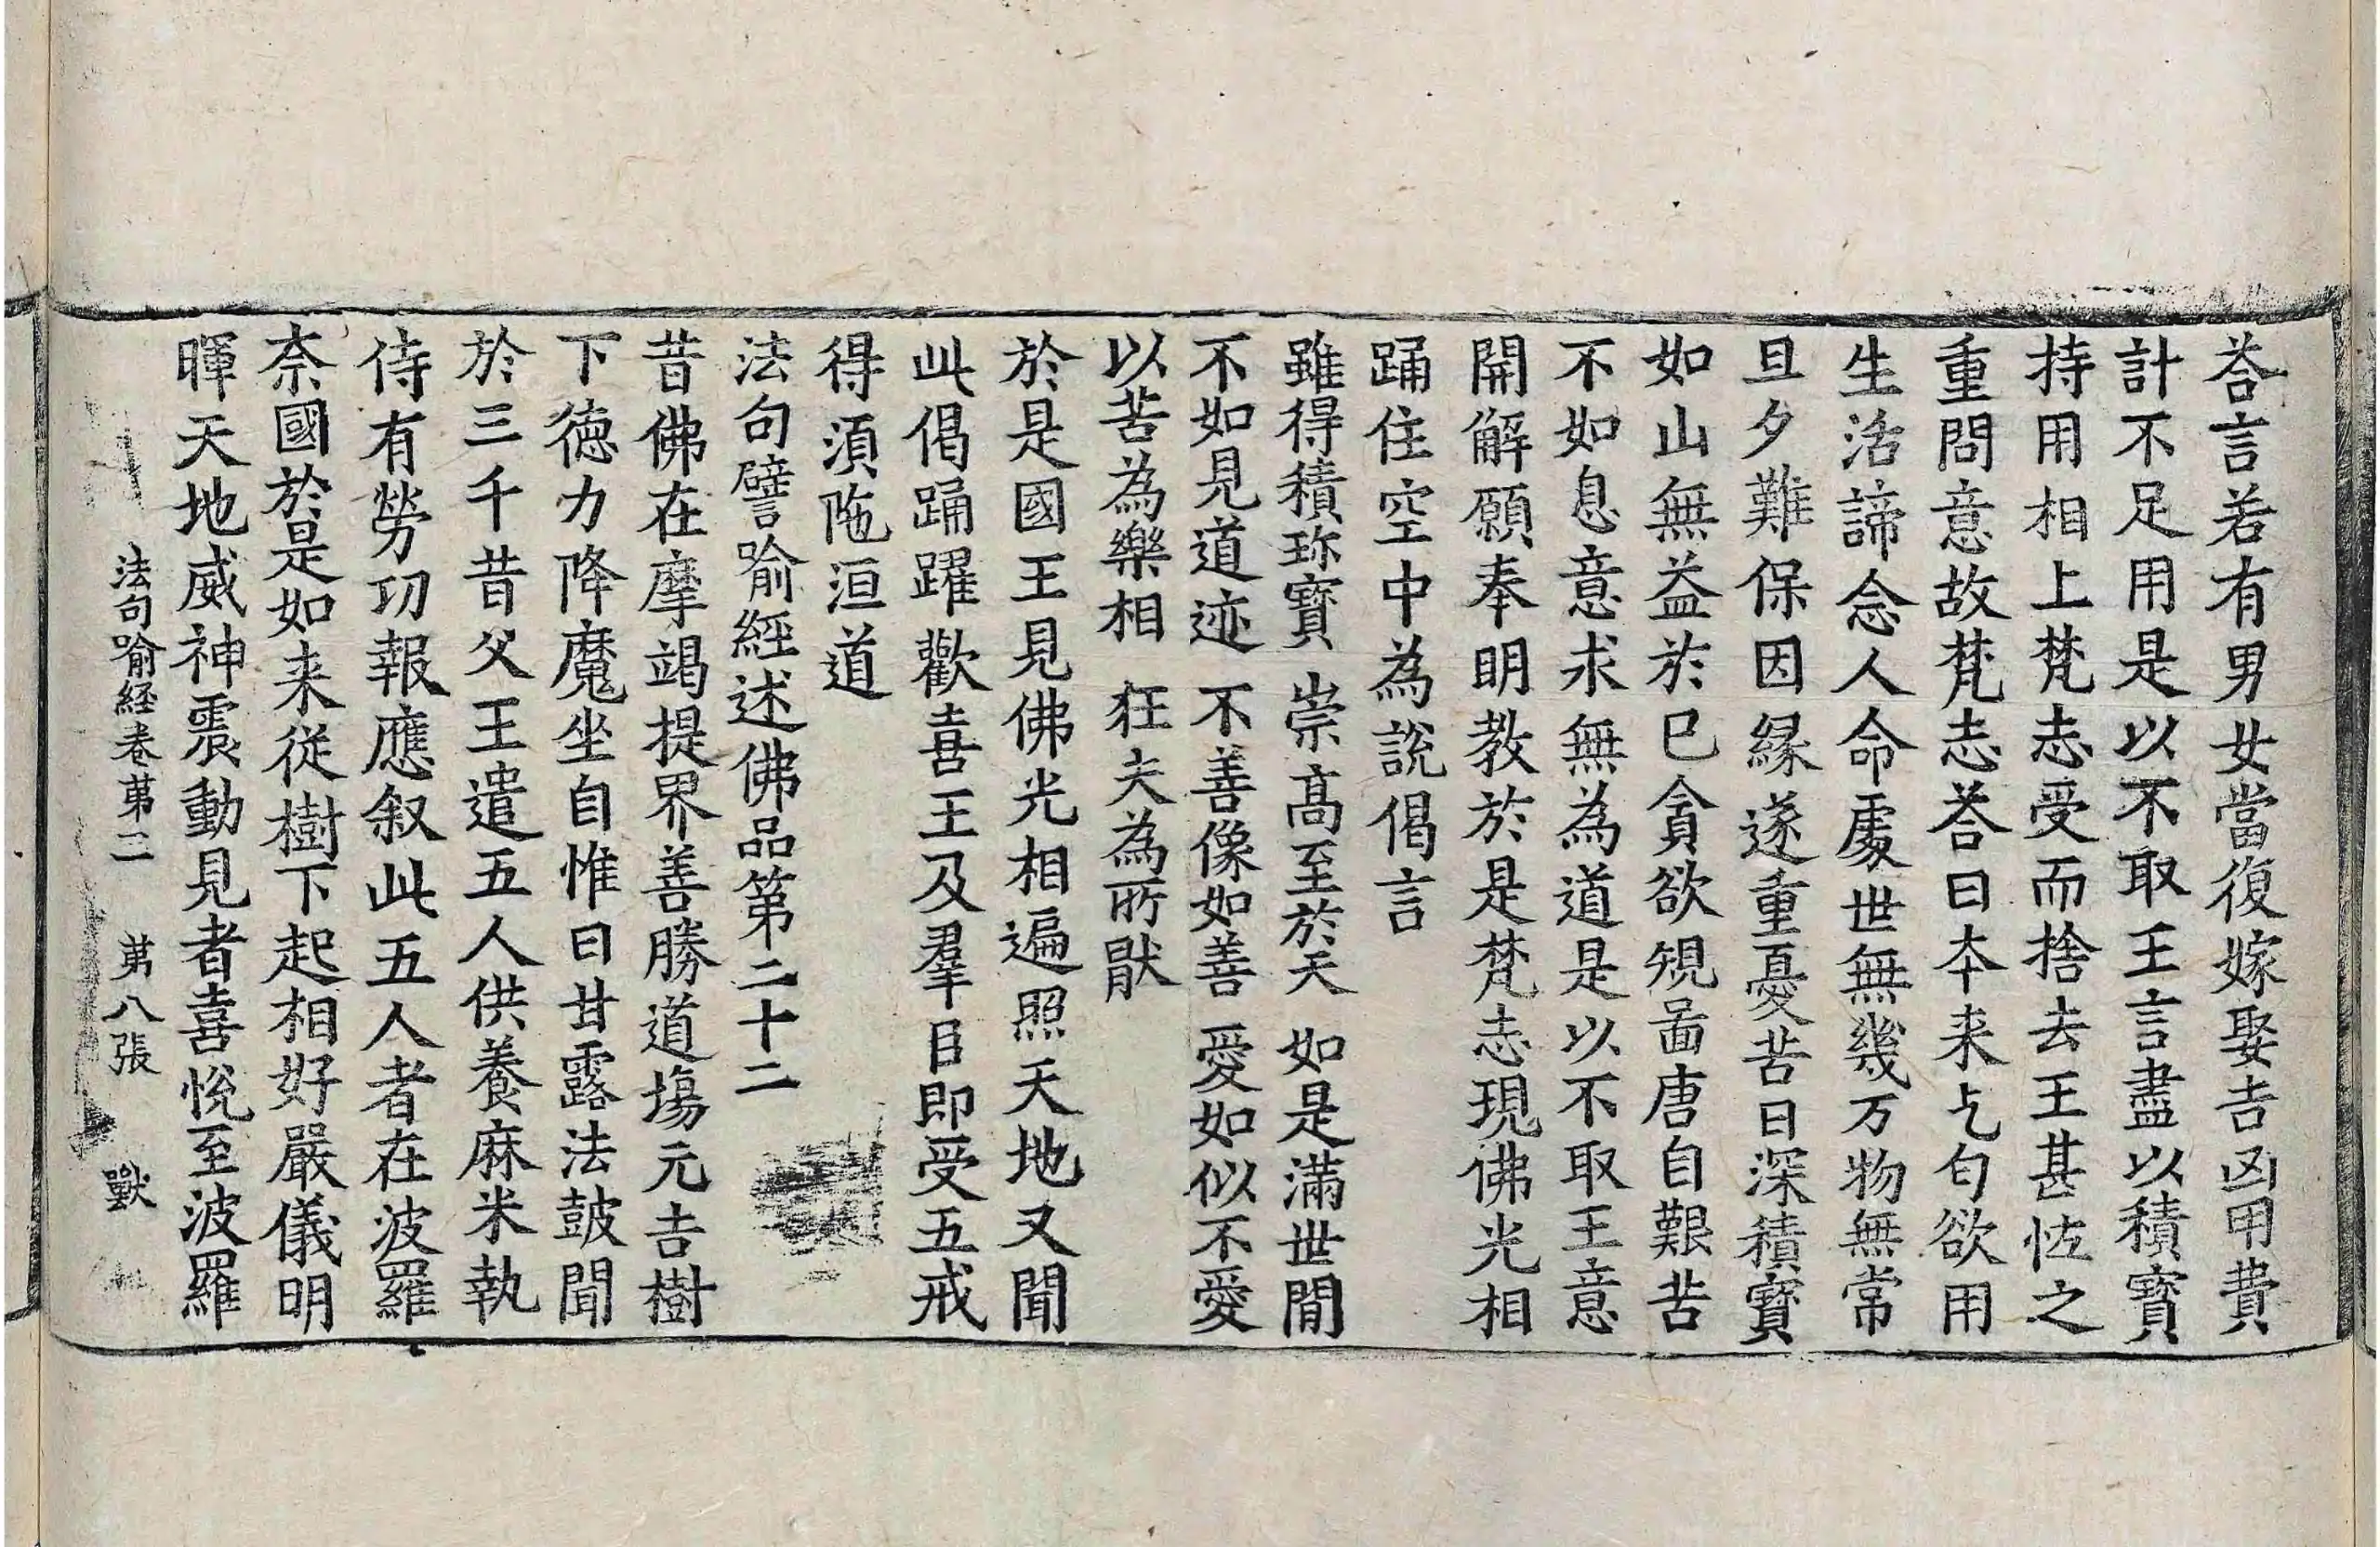 荅言若有男女當復嫁娶吉凶用費
計不足用是以不取王言盡以積寶
持用相上梵志受而捨去王甚恠之
重問意故梵志荅曰本来乞匂欲用
生活諦念人命處世無幾万物無常
旦夕難保因緣遂重憂苦日深積寶
如山無益於已貪欲規啚唐自艱苦
不如息意求無為道是以不取王意
開解願奉明教於是梵志現佛光相
踊住空中為說偈言
雖得積珎寶　崇髙至於天　如是滿世間
不如見道迹　不善像如善　愛如似不愛
以苦為樂相　狂夫為所猒
於是國王見佛光相遍照天地又聞
此偈踊躍歡喜王及羣臣即受五戒
得湏陁洹道
法句譬喻經述佛品第二十二
昔佛在摩竭提界善勝道塲元吉樹
下德力降魔坐自惟曰甘露法皷聞
於三千昔父王遣五人供養麻米執
侍有勞功報應叙此五人者在波羅
奈國於是如来従樹下起相好嚴儀明
暉天地威神震動見者喜悅至波羅
法句喻経卷苐三　苐八張　獸